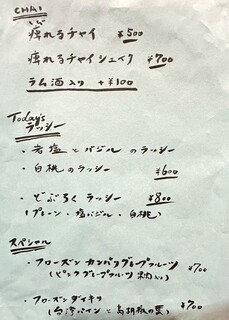 CHAI
痺れるチャイ ¥500
痺れるチャイシェイク ¥700
ラム酒入り +¥100
Today's
ラッシー
・岩塩とバジルのラッシー
・白桃のラッシー ¥600
・どぶろくラッシー ¥800
(プレーン・塩バジル・白桃)
スペシャル
・フローズンカンパリグレープフルーツ ¥700
(ピンクグレープフルーツ果肉入り)
・フローズンダイキリ ¥700
(台湾パインと烏胡椒の)